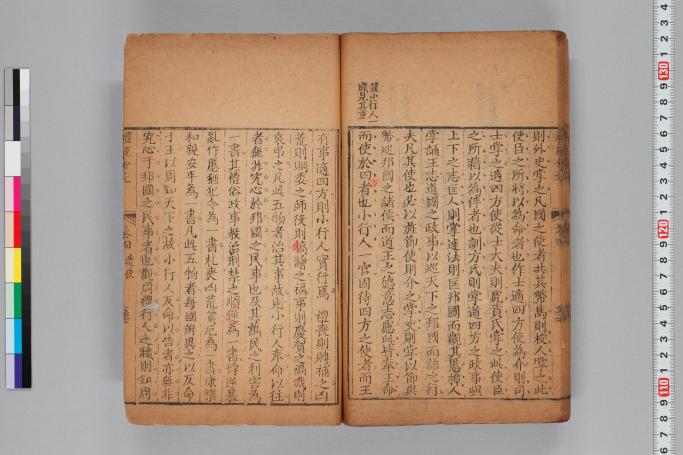 則外史掌之凡國之使者共其幣馬則校人掌之此
使臣之所將以為命者也作士適四方使為介則司
士掌之適四方使從士大夫則虎賁氏掌之此使臣
之所藉以為伴者也訓方氏則掌道四方之政事與
上下之志匡人則掌達法則匡邦國而觀其慝撢人
掌誦王志道國之政事以巡天下之邦國而語之行
夫凡其使也必以旌節使則介之掌交則掌以節與
幣巡邦國之諸侯而道王之德意志慮
而使於四者也小行人一官固待四方之使者而王
有事適四方則小行人實行焉 禮喪則賻補之凶
荒則賙委之師役則槁禬之福事則慶賀之禍烖則
哀弔之凡此五物者治其事故此小行人奉命以往
者無非究心於邦國之民事也及其萬民之利害為
一書其禮俗政事教治刑禁之逆順為一書悖逆暴
亂作慝猶犯令為一書札喪凶荒厄為一書康樂
和親安平為一書凡此五物者每國辨異之以反命
于王以周知天下之故小行人反命以告者亦無非
究心于邦國之民事者也觀周禮行人之職則知周
130
120
110